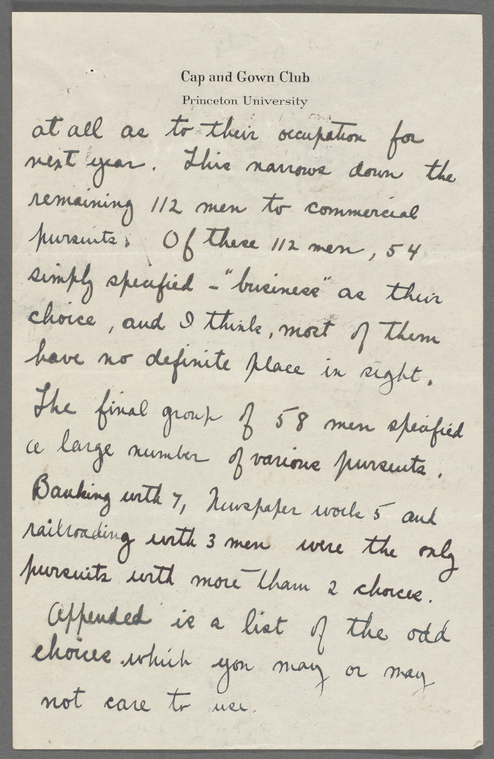 Cap and Gown Club
Princeton University
at all as to their occupation for
next year. This narrows down the
remaining 112 men to commercial
pursuits. Of these 112 men, 54
simply specified - "business" as their
choice, and I think, most of them
have no definite place in sight.
The final group of 58 men specified
a large number of various pursuits.
Banking with 7, Newspaper work 5 and
railroading with 3 men were the only
pursuits with more than 2 choices.
Appended is a list of the odd
choices which you may or may
not care to use.